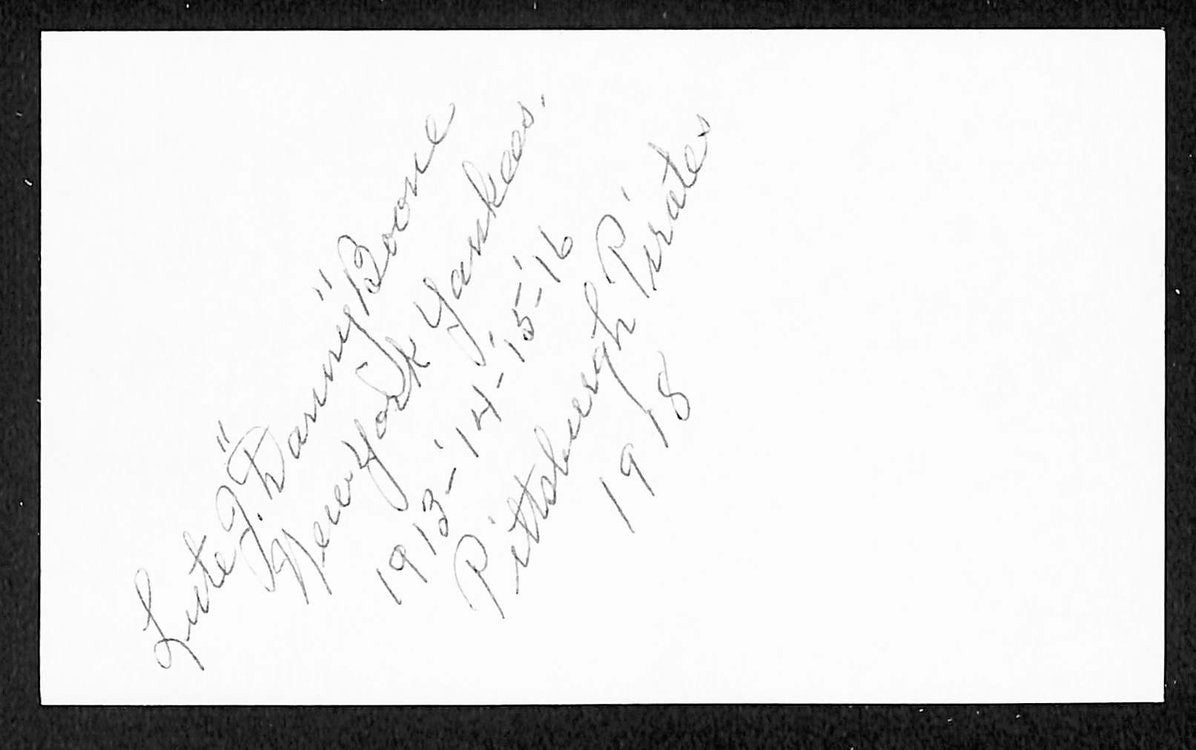 Lute J. "Danny" Boone
New York Yankees.
1913-'14-'15-'16
Pittsburgh Pirates
1918